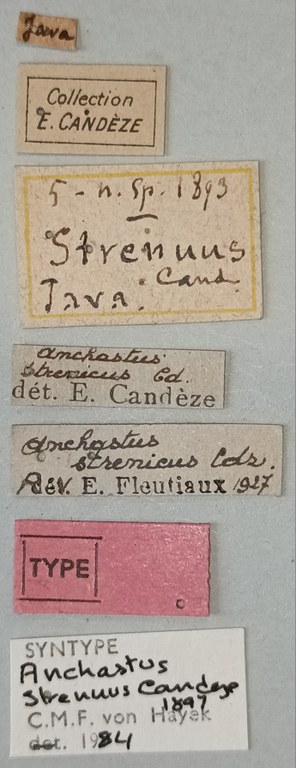 Java
Collection
E. CANDÈZE
5 - n. Sp. 1893
Strenuus
Cand.
Java.
Anchastus
strenicus Cd.
dét. E. Candèze
Anchastus
strenicus Cdz.
Rév. E. Fleutiaux 1927
TYPE
SYNTYPE
Anchastus
strenuus Candeze
1897
C.M.F. von Hayek
det. 1984